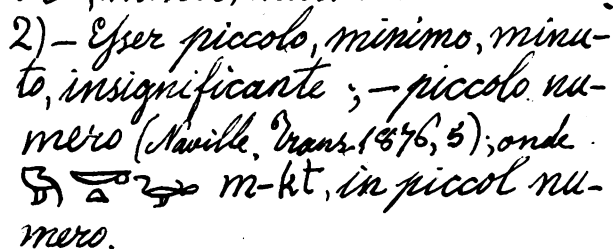 2) — Esser piccolo, minimo, minu-
to, insignificante; — piccolo nu-
mero (Naville, Trans. 1876, 5); onde
m-kt, in piccol nu-
mero.